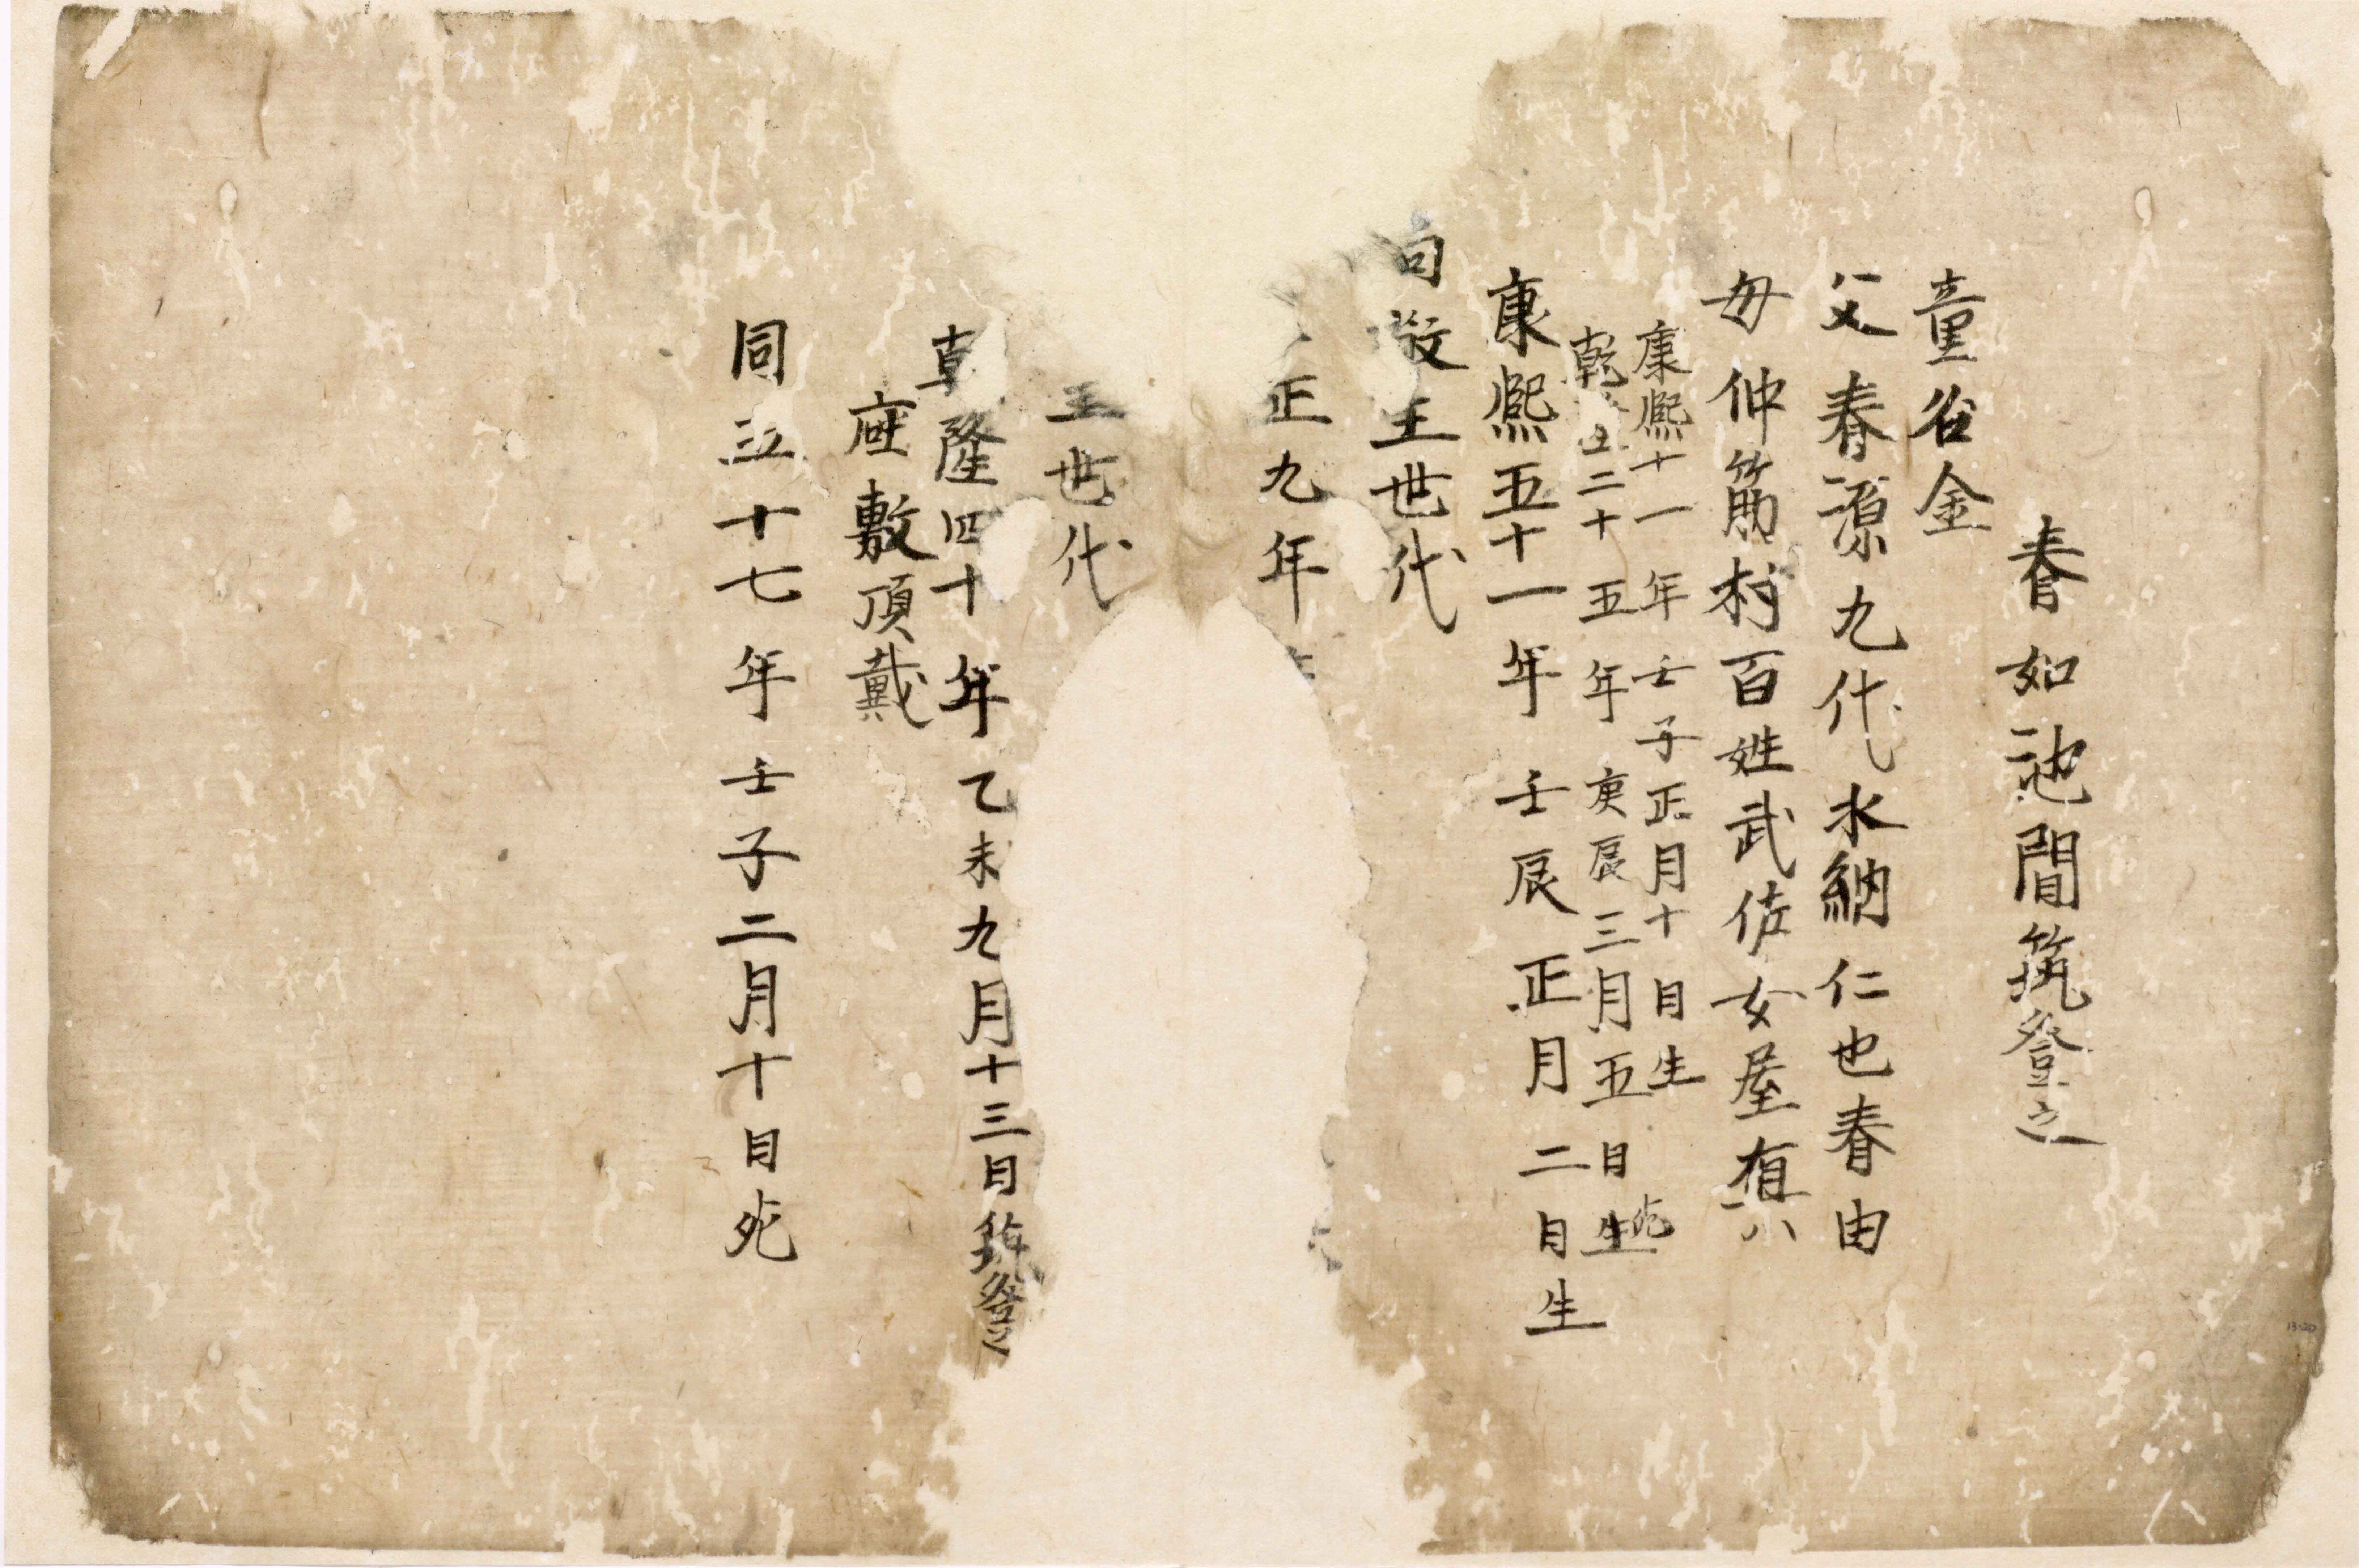 春如池間筑登之
童名金
父春源九代水納仁也春由
母仲筋村百姓武佐女屋真八
康熙十一年壬子正月十日生
乾隆二十五年庚辰三月五日死
康熙五十一年壬辰正月二日生
向敬王世代
正九年
王世代
乾隆四十年乙未九月十三日筑登之
座敷頂戴
同五十七年壬子二月十日死